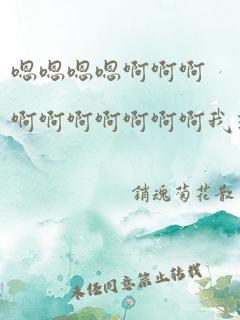 嗯嗯嗯嗯啊啊啊
啊啊啊啊啊啊啊我
銷魂菊花散
未经同意禁止转载